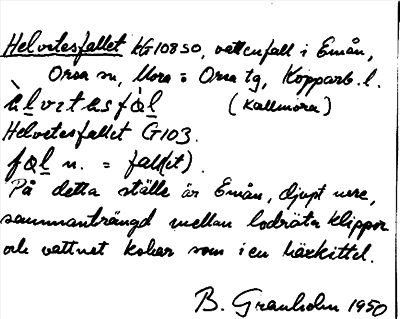 Helvetesfallet HG10850, vattenfall i Emån,
Orsa sn, Mora o Orsa tg, Kopparb. l.
(Kallmora)
Helvetesfallet G103.
fal n. = fall(et).
På detta ställe är Emån, djupt nere,
sammanträngd mellan lodräta klippor
och vattnet kokar som i en häxkittel.
B. Granholm 1950